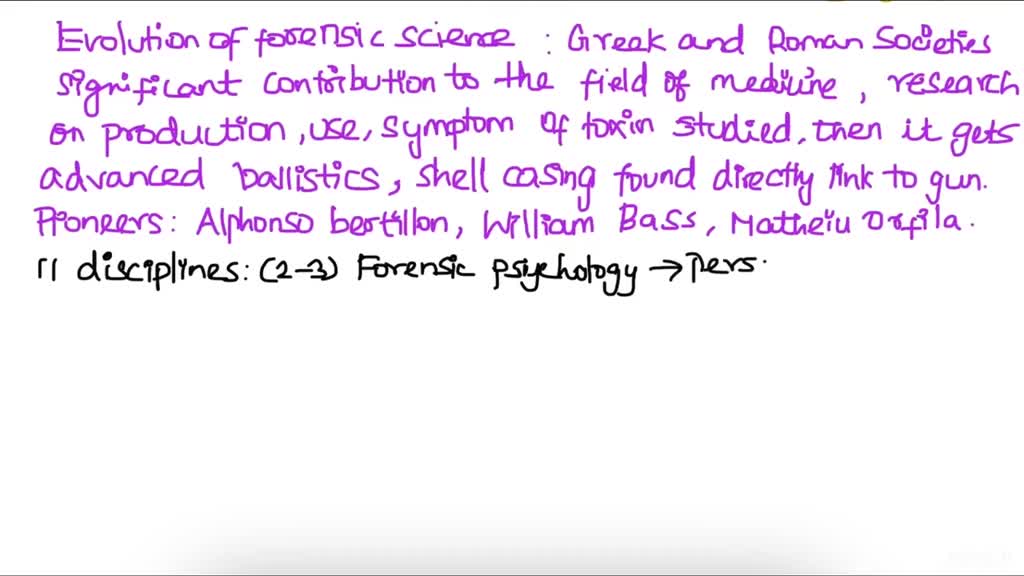 Evolution of forensic science : Greek and Roman Societies
significant contribution to the field of medicine, research
on production, use, symptom of toxin studied, then it gets
advanced ballistics, shell casing found directly link to gun.
Pioneers: Alphonso bertillon, William Bass, Matheiu Orfila.
11 disciplines: (2-3) Forensic psychology → Pers.